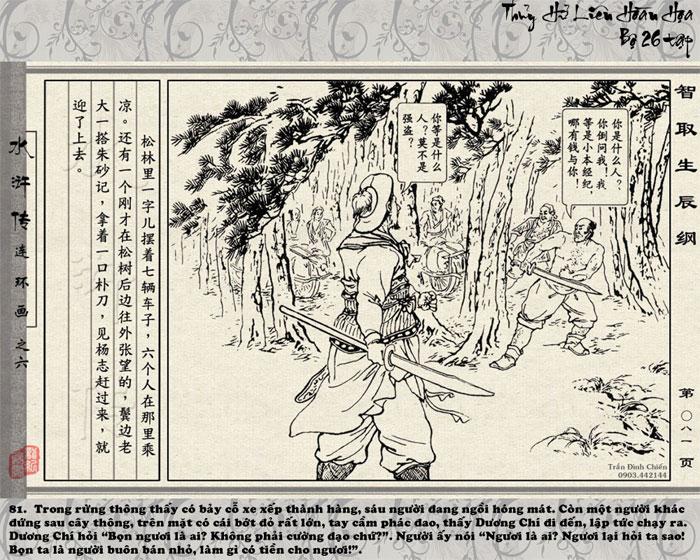 Thủy Hử Liên Hoàn Họa
Bộ 26 tập
智取生辰纲
第〇八一页
水浒传连环画之六
你是什么人？
你倒问我！我
等是小本经纪，
哪有钱与你！
你等是什么
人？莫不是
强盗？
松林里一字儿摆着七辆车子，六个人在那里乘
凉。还有一个刚才在松树后边往外张望的，鬓边老
大一搭朱砂记，拿着一口朴刀，见杨志赶过来，就
迎了上去。
Trần Đình Chiến
0903.442144
81. Trong rừng thông thấy có bảy cỗ xe xếp thành hàng, sáu người đang ngồi hóng mát. Còn một người khác
đứng sau cây thông, trên mặt có cái bớt đỏ rất lớn, tay cầm phác đao, thấy Dương Chí đi đến, lập tức chạy ra.
Dương Chí hỏi “Bọn ngươi là ai? Không phải cường đạo chứ?”. Người ấy nói “Ngươi là ai? Ngươi lại hỏi ta sao!
Bọn ta là người buôn bán nhỏ, làm gì có tiền cho ngươi!”.